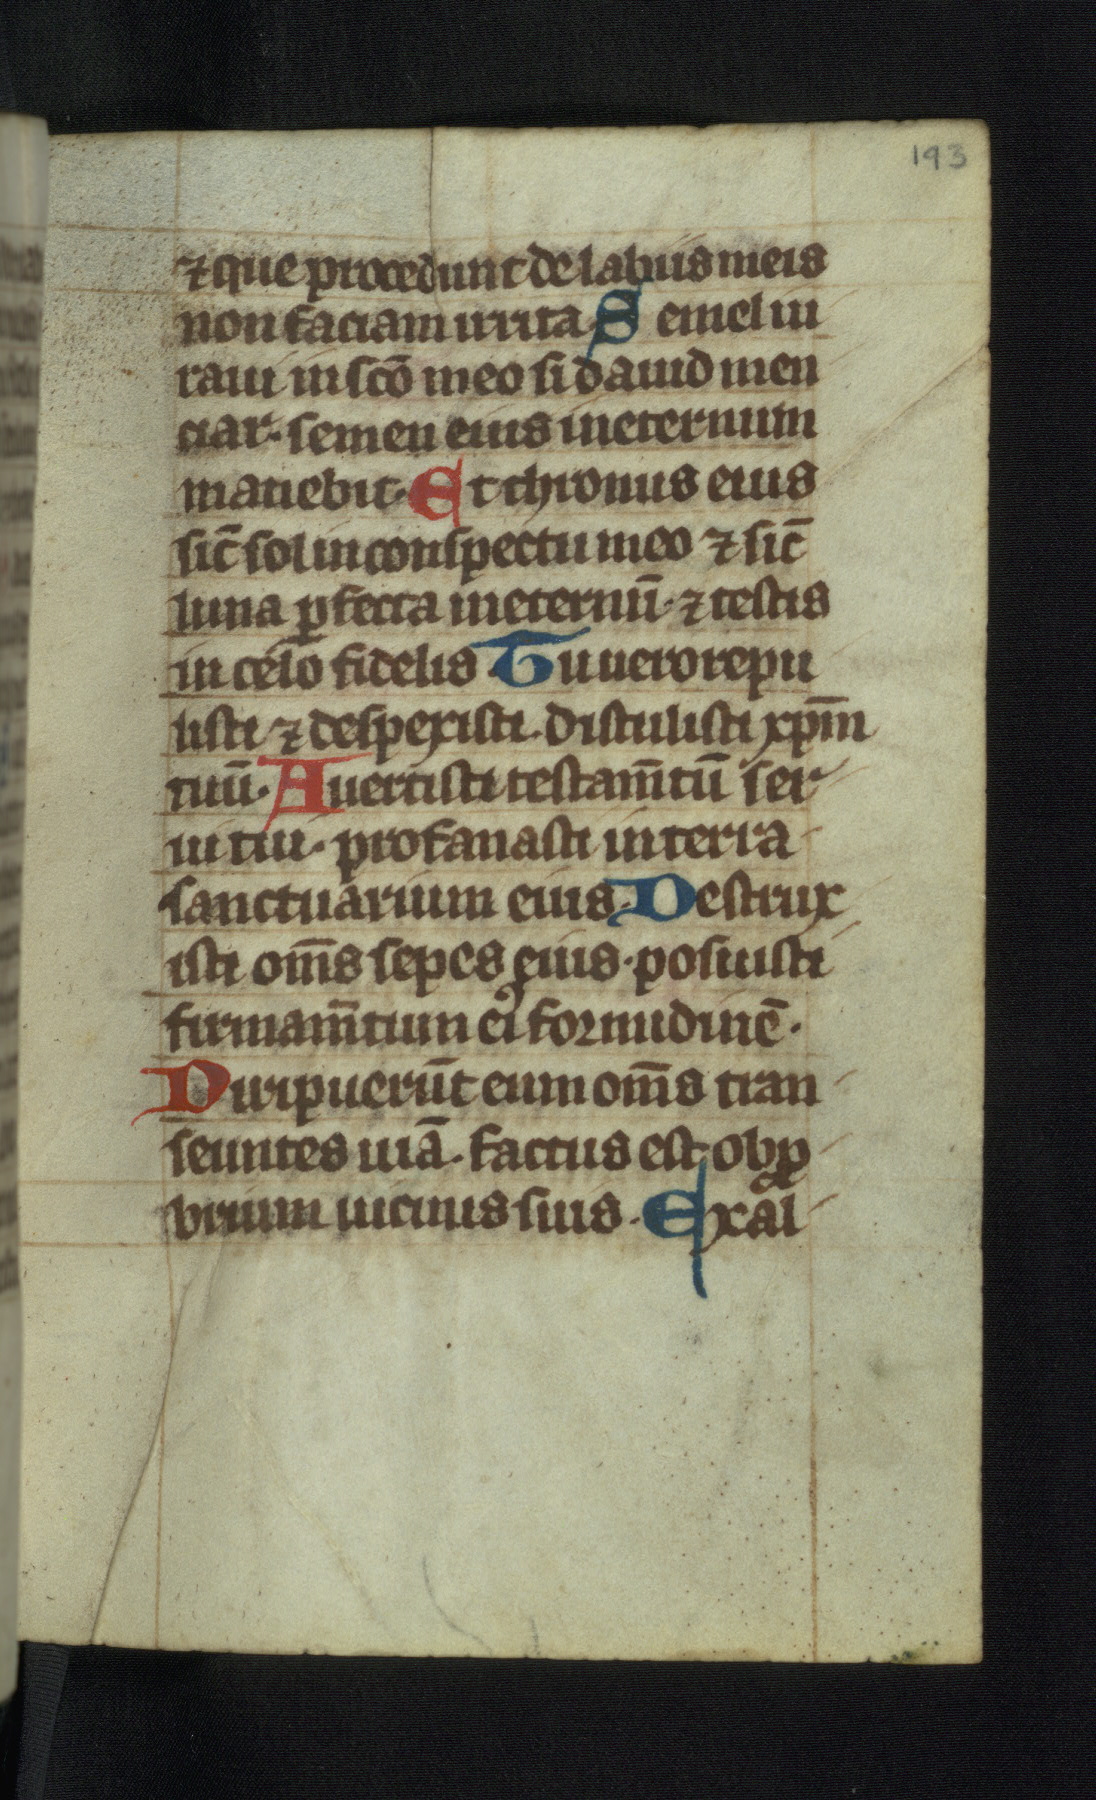 193
⁊ que procedunt de labiis meis
non faciam irrita. Semel iu
raui in sc̄o meo si dauid men
ciar· semen eius ineternum
manebit· Et thronus eius
sic̄ sol in conspectu meo ⁊ sic̄
luna ꝑfecta in eternū· ⁊ testis
in celo fidelis. Tu uero repu
listi ⁊ despexisti. distulisti xp̄m
tuū· Auertisti testam̄tū ser
ui tui· profanasti in terra
sanctuarium eius. Destrux
isti om̄s sepes eius· posuisti
firmam̄tum eꝰ formidinē·
Diripuerūt eum om̄s tran
seuntes uiā. factus est obp
brium uicinis suis. Exal